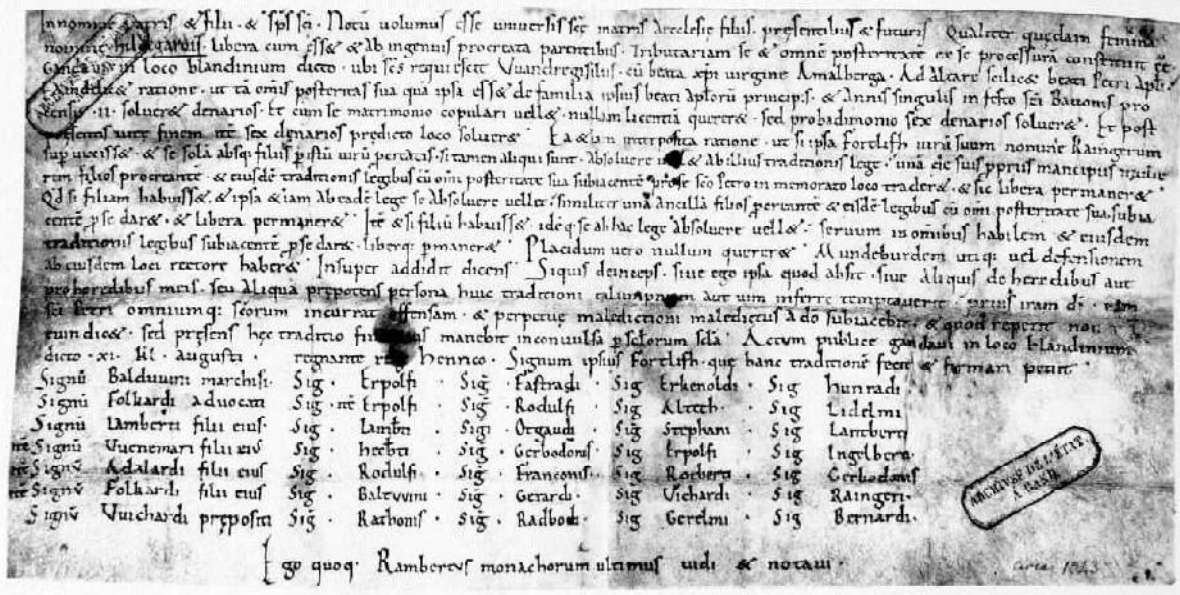 Innomine Patris & filii · & sp̄s sc̄i · Notū uolumus esse uniuersis sc̄ę matris Aecclesię filiis · presentibus & futuris Qualiter quędam femina
nomine hildegardis · libera cum ess& & ab ingenuis procreata parentibus · Tributariam se & omnē posteritatē ex se processurā constituit
in loco blandinium dicto · ubi sc̄s requiescit Vuandregisilus · cū beata xp̄i virgine Amalberga · Ad altare scilic& beati Petri Apl̄i ·
ratione · ut tā omis posteritas sua quā ipsa ess& de familia ipsius beati ap̄lorū principis · & Annis singulis in festo sc̄i Bauonis pro
censu · II · soluer& denarios · Et cum se matrimonio copulari uell& · nullam licentiā querer& · sed pro badimonio sex denarios soluer& · Et post
uitę finem itē sex denarios predicto loco soluer& · Ea &iam interposita ratione · ut si ipsa Fortlifh uirū suum nomine Raingerum
sup̄uixiss& · & se solā absq; filiis p̄ istū uirū p̄creatis · si tamen aliqui sunt · Absoluere uell& ab illius traditionis lege · unā eie suis p̄priis mancipiis
rem filios procreante · & eiusdē traditionis legibus cū om̄i posteritate sua subiacentē pro se sc̄o Petro in memorato loco trader& · & sic libera permaner& ·
Qd̄ si filiam habuiss& · & ipsa & iam ab eadē lege se absoluere uell& · similiter unā Ancillā filios p̄creantē & eisdē legibus cū om̄i posteritate sua subia
centē p̄ se dar& · & libera permaner& · Itē & si filiū habuiss& · idē q; se ab hac lege absoluere uell& · seruum in omībus habilem & eiusdem
traditionis legibus subiacentē p̄ se dar& · liberq; p̄maner& · Placidum uero nullum querer& · Mundeburdem utiq; uel defensionem
ab eiusdem loci rectore haber& · Insuper addidit dicens · Siquis deinceps · siue ego ipsa quod absit · siue aliquis de heredibus aut
prohoredibus meis · seu aliqua prępotens persona huic traditioni calumpniam aut uim inferre temptauerit · iram dī ·
sc̄i Petri omnium q; sc̄orum incurrat offensam · & perpetuę maledictioni maledictus a dō subiacebit · & quod repetit non
euindic& · sed pręsens hęc traditio manebit inconuulsa p̄ sęcl̄orum sęcl̄a · Actum publice gandaui in loco blandinium
dicto · XI · kl̄ · augusti · regnante Henrico · Signum ipsius Fortlifh · que hanc traditionē fecit & firmari petiit ·
Signū Balduuini marchisi · Sig · Erpolfi · Sig̅ · Fastradi · Sig̅ Erkenoldi · Sig̅ hunradi ·
Signū Folkardi aduocati Sig · itē Erpolfi · Sig · Rodulfi · Sig Altech · Sig̅ Lidelmi
Signū Lamberti filii eius · Sig · Lamb̄ti · Sigi · Otgaudi · Sig̅ Stephani · Sig Lamberti
itē Signū Vuenemari filii eius Sig̅ · herb̄ti · Sig̅ · Gerbodonis · Sig̅ Erpolfi · Sig̅ Ingelberti ·
itē Signū Adalardi filii eius Sig̅ · Rodulfi · Sig̅ · Franconis · Sig̅ Rotberti · Sig̅ Gerbodonis
itē Signū Folkardi filii eius Sig̅ · Baltuuini · Sig̅ · Gerardi · Sig̅ Vichardi · Sig̅ Raingeri ·
Signū Vuichardi prępositi Sig̅ · Rathonis · Sig̅ · Radbodi · Sig̅ Gerelmi · Sig̅ Bernardi ·
Ego quoq; Rambertus monachorum ultimus uidi & notaui ·
ARCHIVES DE L'ÉTAT
A GAND